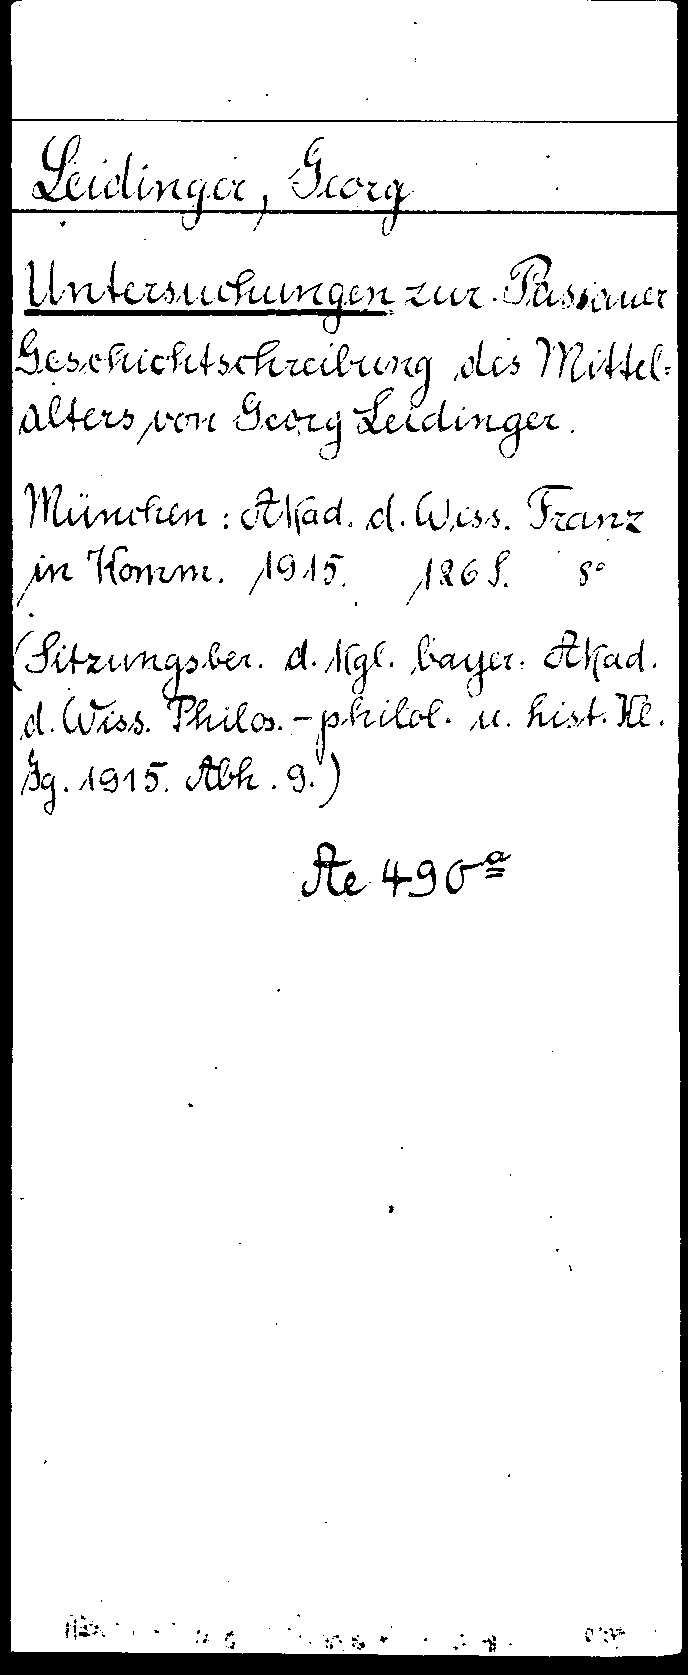 Leidinger, Georg
Untersuchungen zur Passauer
Geschichtschreibung des Mittel-
alters von Georg Leidinger.
München: Akad. d. Wiss. Franz
in Komm. 1915. 126 S. 8°
(Sitzungsber. d. Kgl. bayer. Akad.
d. Wiss. Philos.-philol. u. hist. Kl.
Jg. 1915. Abh. 9.)
Ae 490ª